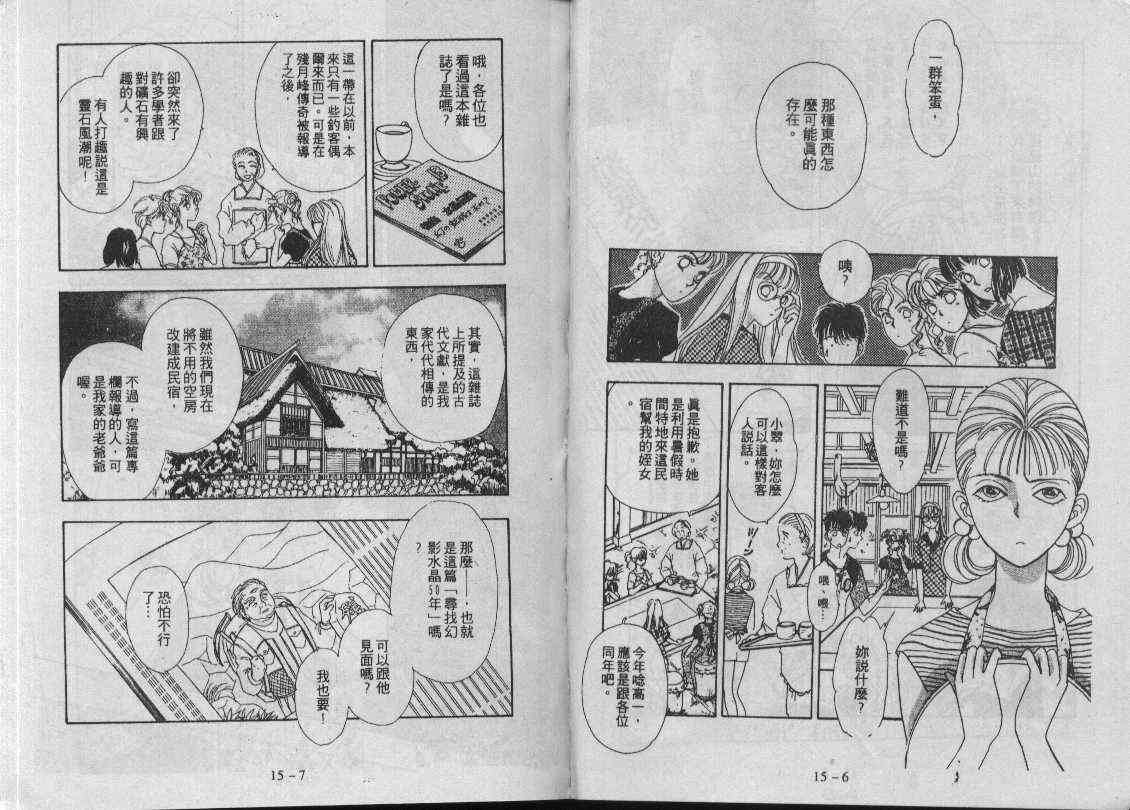 一群笨蛋，
那種東西怎
麼可能真的
存在。
咦？
難道不是嗎？
喂、喂…
妳說什麼？
小翠，妳怎麼
可以這樣對客
人說話。
真是抱歉。她
是利用暑假時
間特地來這民
宿幫我的姪女
。
今年唸高一，
應該是跟各位
同年吧。
15－6
哦，各位也
看過這本雜
誌了是嗎？
這一帶在以前，本
來只有一些釣客偶
爾來而已。可是在
殘月峰傳奇被報導
了之後，
卻突然來了
許多學者跟
對礦石有興
趣的人。
有人打趣說這是
靈石風潮呢！
其實，這雜誌
上所提及的古
代文獻，是我
家代代相傳的
東西，
雖然我們現在
將不用的空房
改建成民宿，
不過，寫這篇專
欄報導的人，可
是我家的老爺爺
喔。
那麼──，也就
是這篇「尋找幻
影水晶50年」嗎
？
可以跟他
見面嗎？
我也要！
恐怕不行
了…
15－7